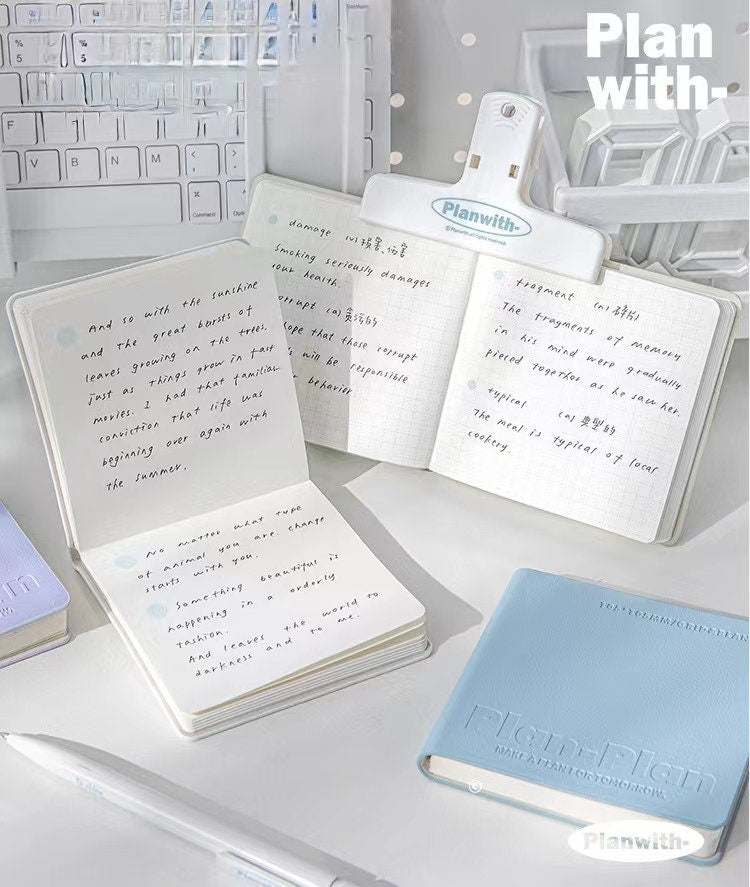 Plan
with-
%
5
5
6
F
V
B
N
M
<
>
,
.
⌘
Command
Planwith-
© Planwith all rights reserved.
damage (v) 損害、伤害
Smoking seriously damages
your health.
corrupt (a)
hope that those corrupt
will be responsible
behavior.
fragment (n) 碎片
The fragments of memory
in his mind were gradually
pieced together as he saw her.
typical (a) 典型的
The meal is typical of local
cookery.
And so with the sunshine
and the great bursts of
leaves growing on the trees,
just as things grow in fast
movies. I had that familiar
conviction that life was
beginning over again with
the summer.
No matter what type
of animal you are, change
starts with you.
Something beautiful is
happening in a orderly
fashion.
And leaves the world to
darkness and to me.
Plan-Plan
MAKE A PLAN FOR TOMORROW.
©
Planwith-